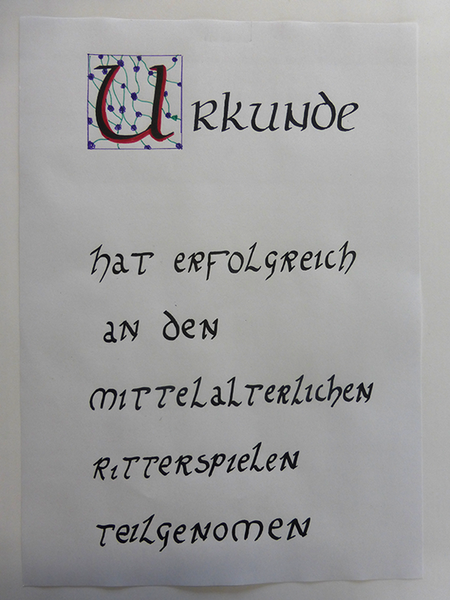 Urkunde
hat erfolgreich
an den
mittelalterlichen
Ritterspielen
teilgenomen